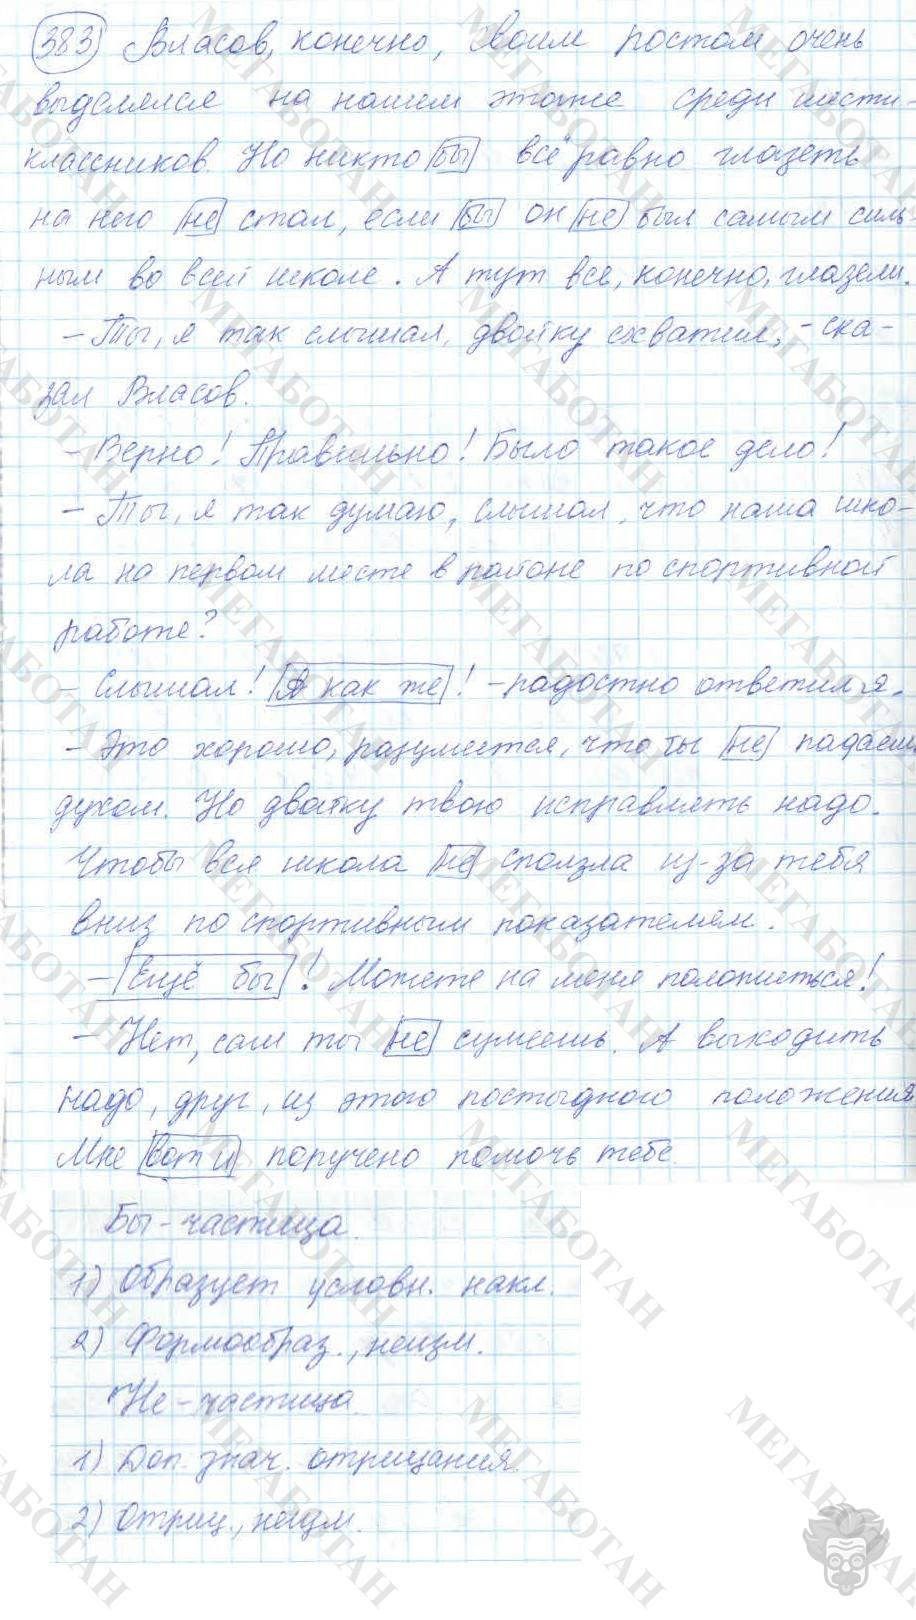 383 Власов, конечно, своим ростом очень
выделялся на нашем этаже среди шести-
классников. Но никто бы всё равно глазеть
на него не стал, если бы он не был самым силь
ным во всей школе. А тут все, конечно, глазели.
- Ты, я так слышал, двойку схватил, - ска-
зал Власов.
- Верно! Правильно! Было такое дело!
- Ты, я так думаю, слышал, что наша шко-
ла на первом месте в районе по спортивной
работе?
- Слышал! А как же! - радостно ответил я.
- Это хорошо, разумеется, что ты не падаешь
духом. Но двойку твою исправлять надо.
Чтобы вся школа не сползла из-за тебя
вниз по спортивным показателям.
- Ещё бы! Можете на меня положиться!
- Нет, сам ты не сумеешь. А выходить
надо, друг, из этого постыдного положения
Мне вот и поручено помочь тебе.
Бы - частица.
1) Образует условн. накл.
2) Формообраз., неизм.
Не - частица.
1) Доп. знач. отрицания.
2) Отриц., неизм.
МЕГАБОТАН